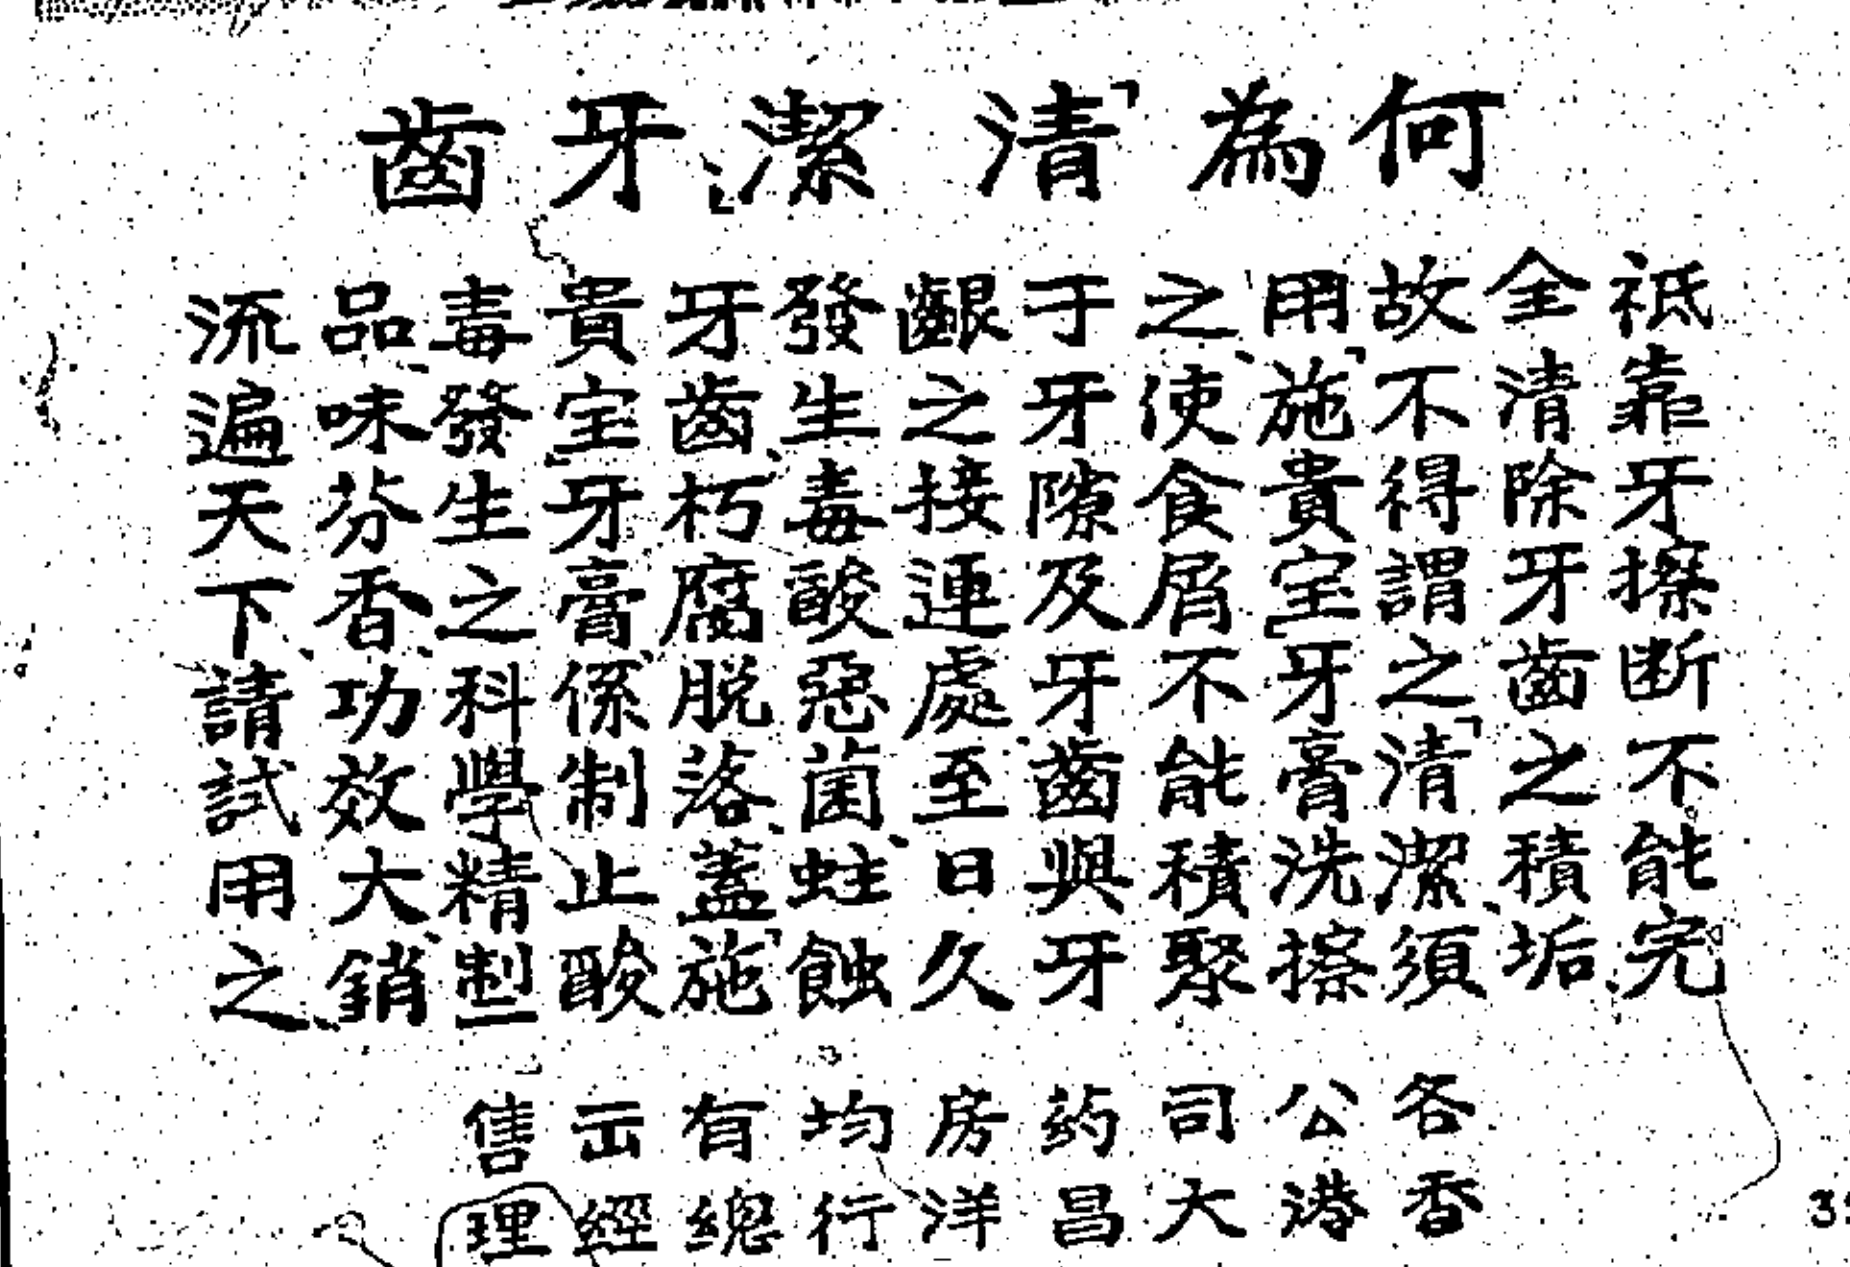 何為「清潔」牙齒
祇靠牙擦断不能完
全清除牙齒之積垢、
故不得謂之「清潔、須
用「施貴宝」牙膏洗擦
之、使食屑不能積聚
于牙隙及牙齒與牙
齦之接連處、至日久
發生毒酸惡菌、蛀蝕
牙齒、朽腐脱落、蓋「施
貴宝」牙膏、係制止酸
毒發生之科學精製
品、味芬香、功效大、銷
流遍天下、請試用之、
各公司药房均有出售
香港大昌洋行總經理